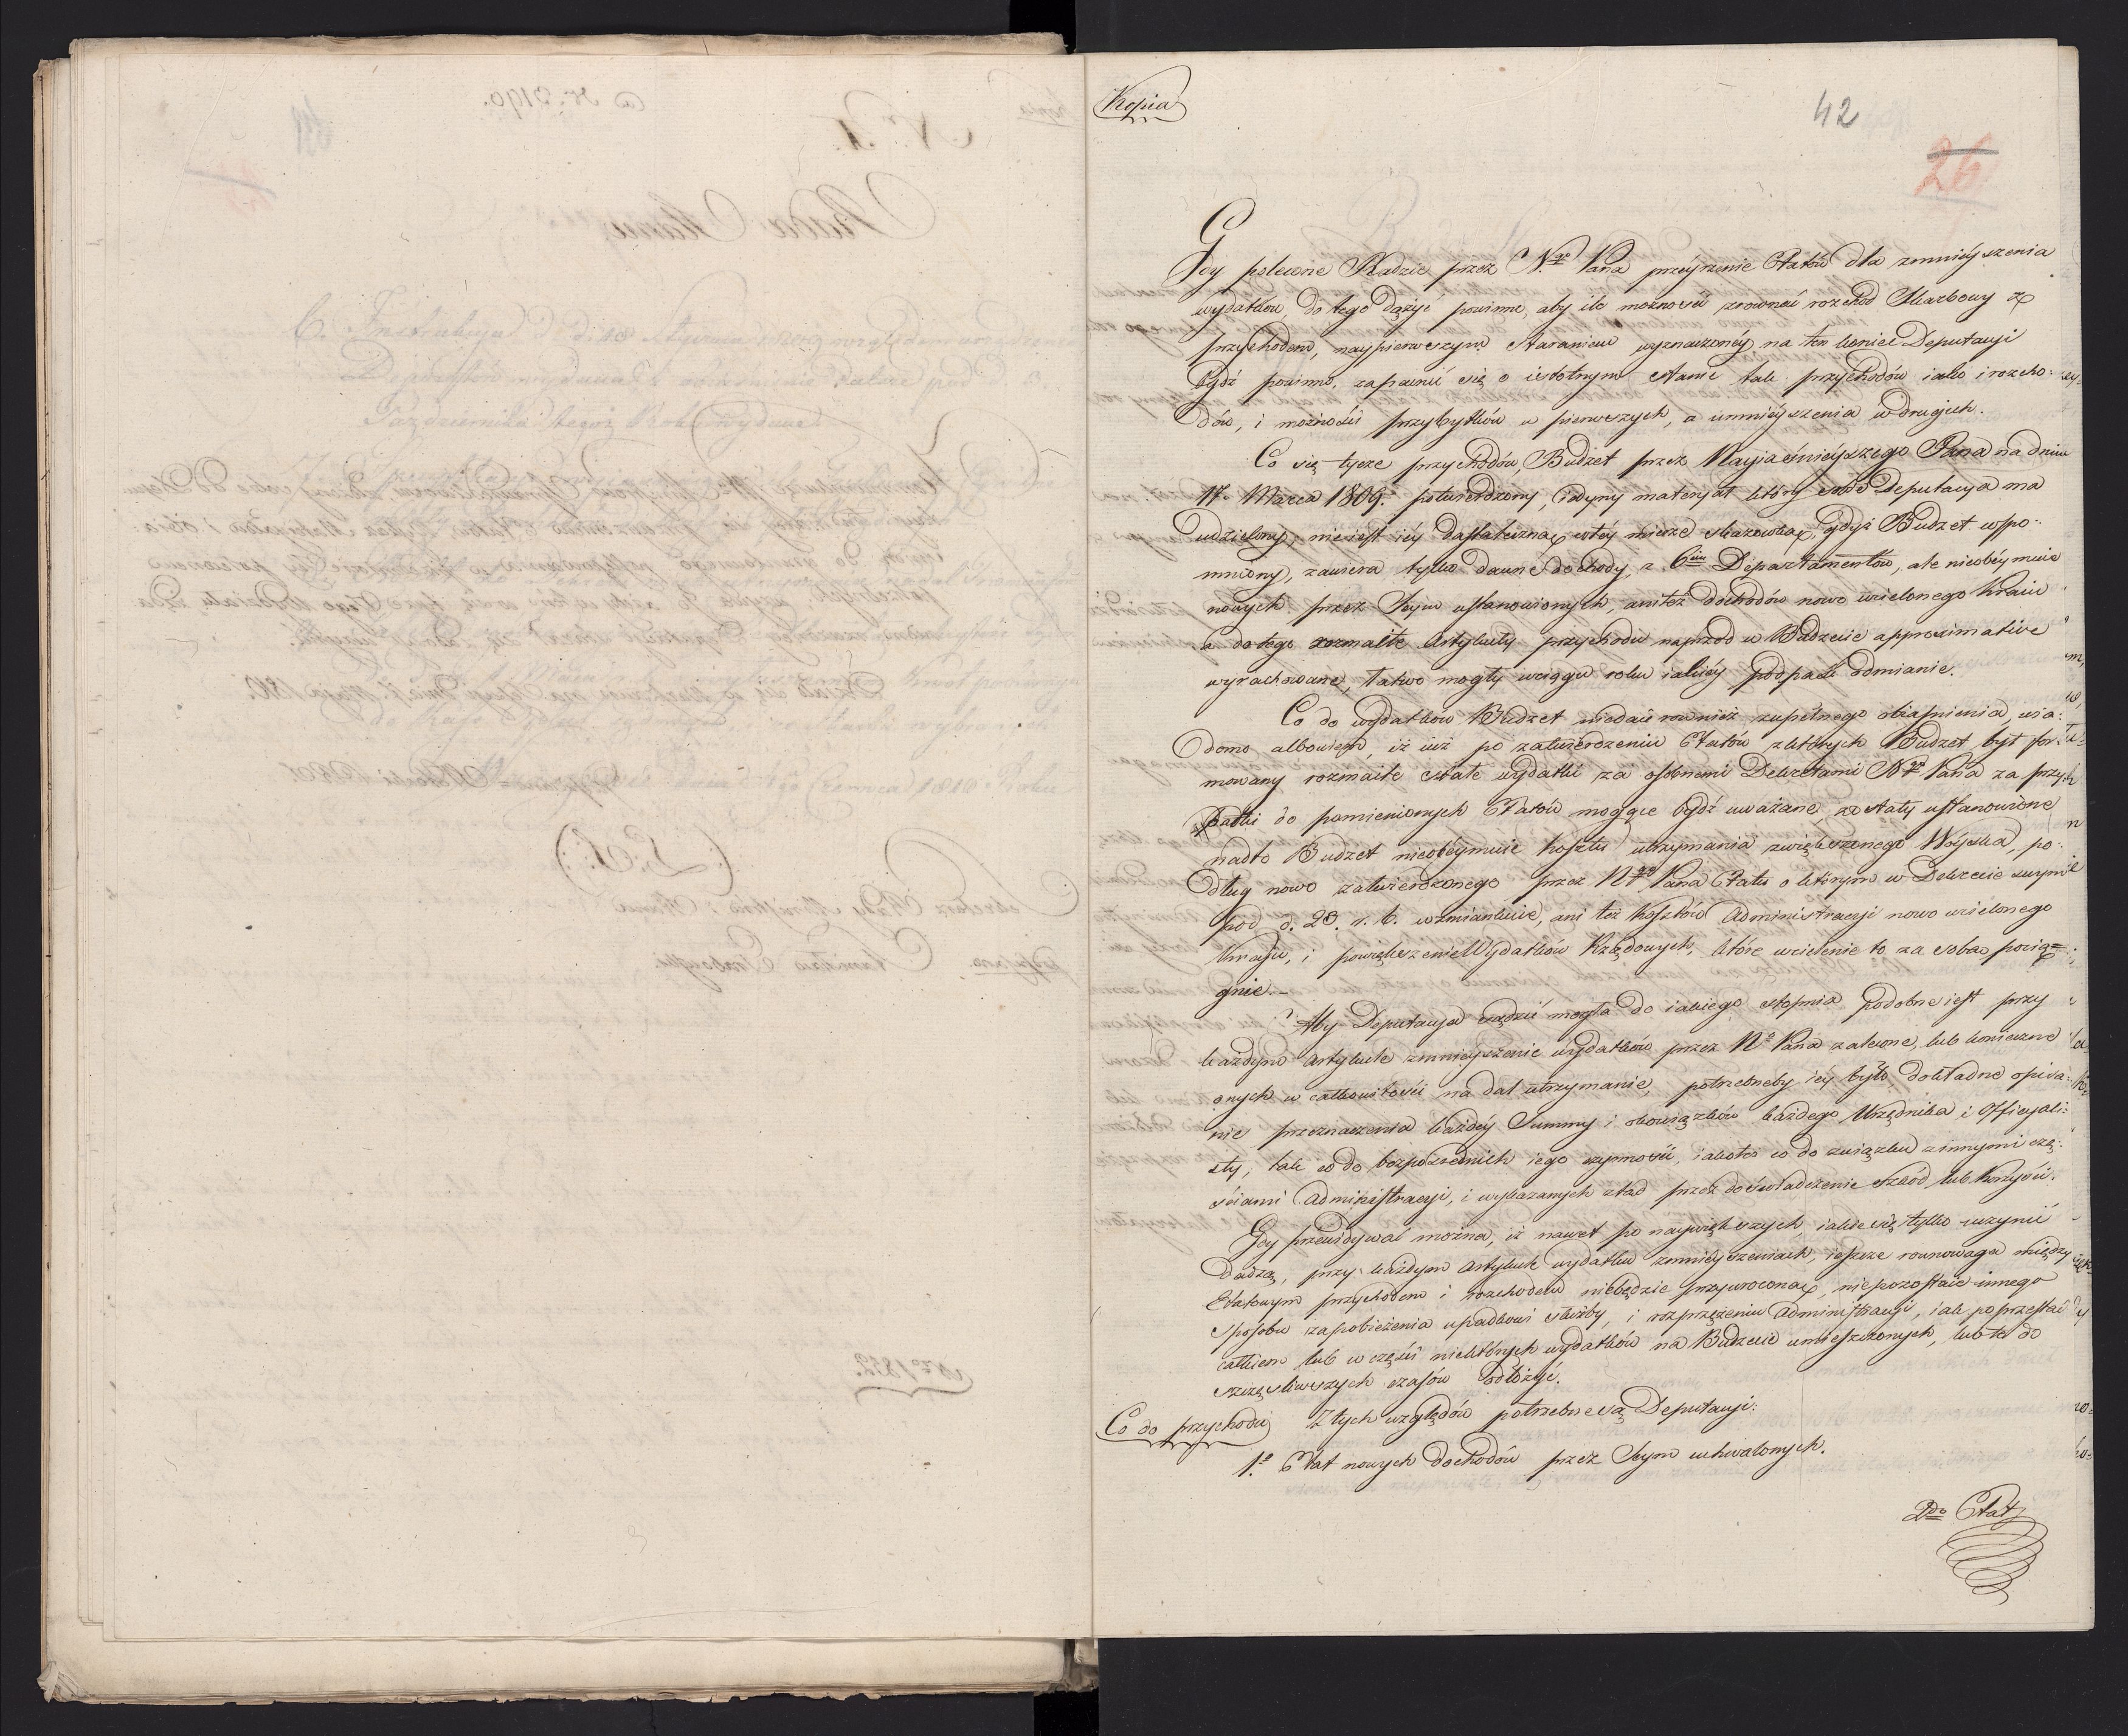 Kopia
42
26
Gdy polecone Radzie przez N.go Pana przeyrzenie Etatów dla zmnieyszenia
wydatków, do tego dążyć powinno, aby ile możności zrównać rozchód Skarbowy z
przychodem, naypierwszym staraniem wyznaczonéy na ten koniec Deputacyi
bydź powinno, zapewnić się o istotnym stanie tak przychodów iako i rozcho-
dów, i możności przybytków w pierwszych, a umnieyszenia w drugich.
Co się tycze przychodów, Budżet przez Nayiaśnieyszego Pana na dniu
17. Marca 1809. potwierdzony, iedyny materyał który sobie Deputacya ma
udzielony, nie iest iéy dostateczną w téy mierze skazówką, gdyż Budżet wspo-
mniony, zawiera tylko dawne dochody, z 6ciu Departamentów, ale nieobéymuie
nowych przez Seym ustanowionych, ani też dochodów nowo wcielonego Kraiu
a do tego rozmaite Artykuły przychodu naprzód w Budżecie approximative
wyrachowane, łatwo mogły w ciągu roku iakiéy podpaść odmianie.
Co do wydatków Budżet niedaie również zupełnego obiaśnienia, wia-
domo albowiem, iż iuż po zatwierdzeniu Etatów z których Budżet był for-
mowany rozmaite stałe wydatki za osobnemi Dekretami N.go Pana za przy-
datki do pomienionych Etatów mogące bydź uważane, zostały ustanowione
nadto Budżet nieobeymuie kosztu utrzymania zwiększonego Woyska, po-
dług nowo zatwierdzonego przez N.go Pana Etatu o którym w Dekrecie swym
pod d. 20. r. b. wzmiankuie, ani też kosztów Administracyi nowo wcielonego
Kraju, i powiększenie Wydatków Rządowych, które wcielenie to za sobą pocią-
gnie.
Aby Deputacya sądzić mogła do iakiego stopnia podobne iest przy
każdym Artykule zmnieyszenie wydatków przez N.o Pana zalecone, lub konieczne
onych w całkowitości nadal utrzymanie, potrzebneby iéy było dokładne opisa-
nie przeznaczenia każdéy Summy i obowiązków każdego Urzędnika i Officyali-
sty, tak co do bezpośrednich iego czynności, iakoteż co do związku z innymi czę-
ściami Administracyi, i wykazanych ztąd przez doświadczenie szkód lub korzyści.
Gdy przewidywać można, iż nawet po naywiększych, iakie się tylko uczynić
dadzą, przy każdym Artykule wydatku zmnieyszeniach, ieszcze równowaga między
Etatowym przychodem i rozchodem niebędzie przywróconą, niepozostaie innego
sposobu zapobieżenia upadkowi służby, i rozprzężeniu Administracyi, iak poprzestać
całkiem lub w części niektórych wydatków na Budżecie umieszczonych, lub te do
szczęśliwszych czasów odłożyć.
Co do przychodu Z tych względów potrzebne są Deputacyi:
1.o Etat nowych dochodów przez Seym uchwalonych.
2do Etat